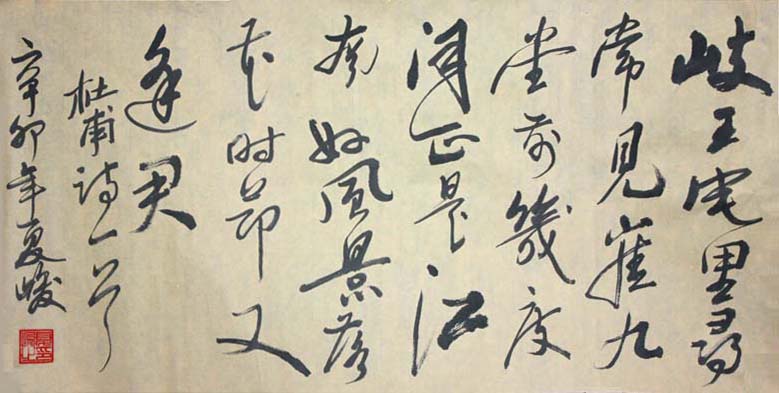 岐王宅里尋
常見崔九
堂前幾度
闻正是江
南好風景落
花时節又
逢君
杜甫诗一首
辛卯年夏峻